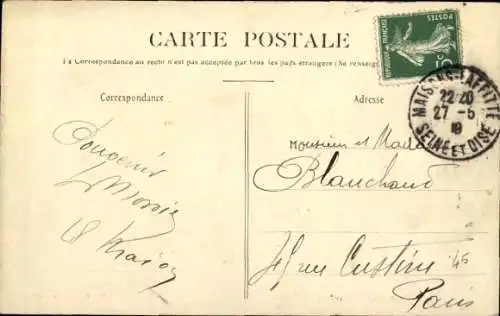 CARTE POSTALE
La Correspondance au recto n'est pas acceptée par tous les pays étrangers (Se renseig
Correspondance
Adresse
POSTES
REPUBLIQUE FRANÇAISE
5
MAISONS-LAFFITTE
22 20
27 - 5
SEINE ET OISE
Souvenir
Monsieur et Mada
Blanchaud
rue Custine 45
Paris